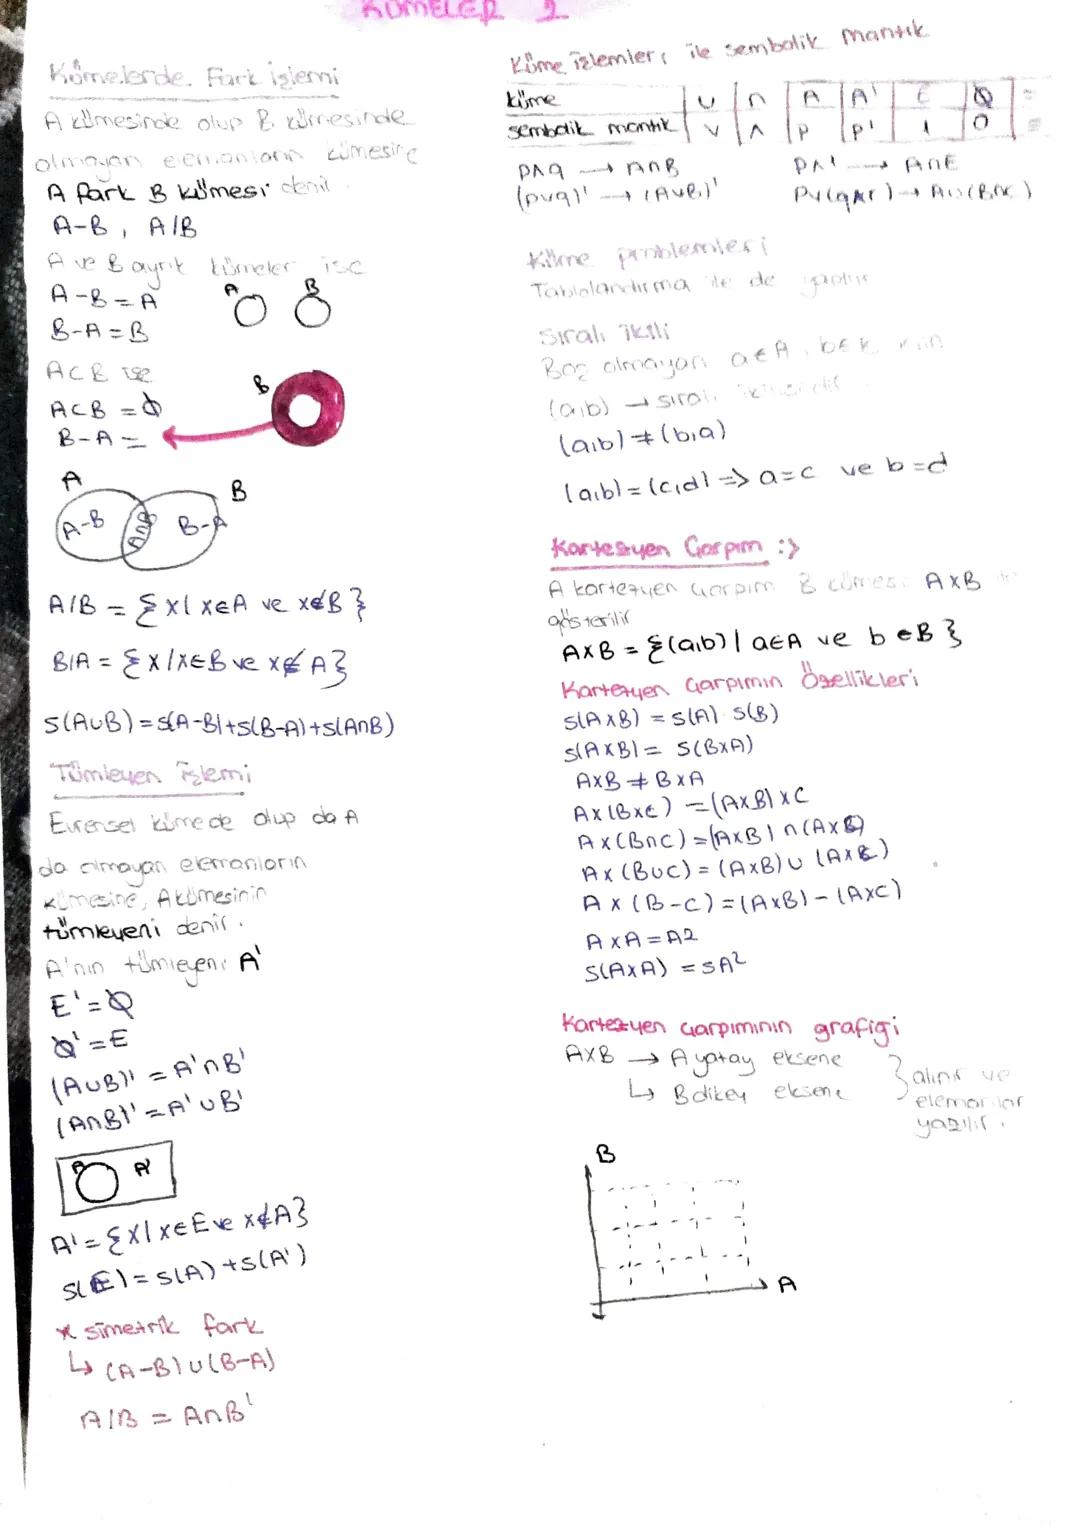 KÜMELER 2
Kümelerde Fark işlemi
A kümesinde olup B kümesinde
olmayan elemanların kümesine
A fark B kümesi denir.
A-B, A/B
A ve B ayrık kümeler ise
A-B = A
B-A = B
A B
ACB ise
ACB = Ø
B-A =
B
A
B
A-B
AnB
B-A
A/B = {x| x∈A ve x∉B}
B/A = {x/x∈B ve x∉A}
s(A∪B) = s(A-B)+s(B-A)+s(A∩B)
Tümleyen işlemi
Evrensel kümede olup da A
da olmayan elemanların
kümesine, A kümesinin
tümleyeni denir.
A'nın tümleyeni A'
E' = Ø
Ø' = E
(A∪B)' = A'∩B'
(A∩B)' = A'∪B'
A A'
A' = {x| x∈E ve x∉A}
s(E) = s(A)+s(A')
* simetrik fark
↳ (A-B)∪(B-A)
A/B = A∩B'
Küme işlemleri ile sembolik mantık
küme | ∪ | ∩ | A | A' | E | Ø | =
sembolik mantık | ∨ | ∧ | p | p' | 1 | 0 | ≡
p∧q → A∩B
p∧1 → A∩E
(p∨q)' → (A∪B)'
p∨(q∧r) → A∪(B∩C)
Küme problemleri
Tablolandırma ile de yapılır
Sıralı ikili
Boş olmayan a∈A, b∈
(a,b) → sıralı ikilidir
(a,b) ≠ (b,a)
(a,b) = (c,d) => a=c ve b=d
Kartezyen Çarpım :>
A kartezyen çarpım B kümesi AxB
gösterilir
AxB = {(a,b)| a∈A ve b∈B}
Kartezyen Çarpımın Özellikleri
s(AxB) = s(A).s(B)
s(AxB) = s(BxA)
AxB ≠ BxA
Ax(BxC) = (AxB)xC
Ax(B∩C) = (AxB)∩(AxC)
Ax(B∪C) = (AxB)∪(AxC)
Ax(B-C) = (AxB)-(AxC)
AxA = A2
s(AxA) = sA²
Kartezyen Çarpımının grafiği
AxB → A yatay eksene
↳ B dikey eksene
} alınır ve
elemanlar
yazılır.
B
A